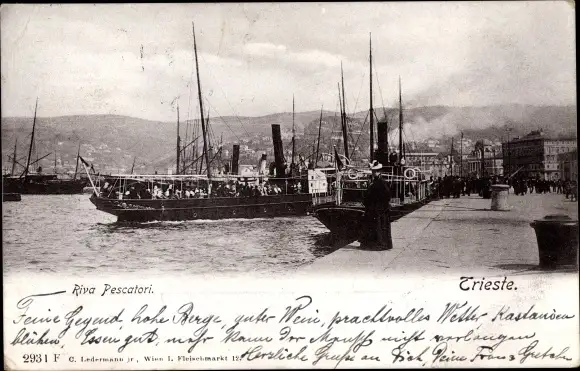 Riva Pescatori.
Trieste.
Feine Gegend, hohe Berge, guter Wein, prachtvolles Wetter, Kastanien
blühen, Essen gut, mehr kann Der Mensch nicht verlangen
2931 F C. Ledermann jr., Wien I. Fleischmarkt 12.
Herzliche Grüße an Dich, Deine Franz Gretchen